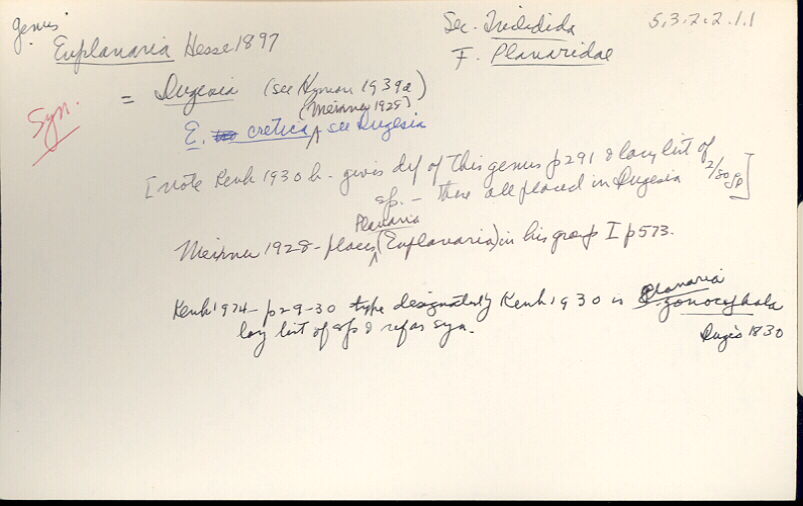 genus
Euplanaria Hesse 1897
Sec. Tricladida
F. Planaridae
5.3.2.2.1.1
Syn.
= Dugesia (see Hyman 1939a)
(Meixner 1928)
E. cretica, see Dugesia
[note Kenk 1930 b - gives def of this genus p 291 & long list of
sp. - these all placed in Dugesia
Planaria
Meixner 1928 - places (Euplanaria) in his group I p 573.
Kenk 1974 - p 29-30 type designated by Kenk 1930 is Planaria gonocephala
Dugès 1830
long list of sp & refs as syn.